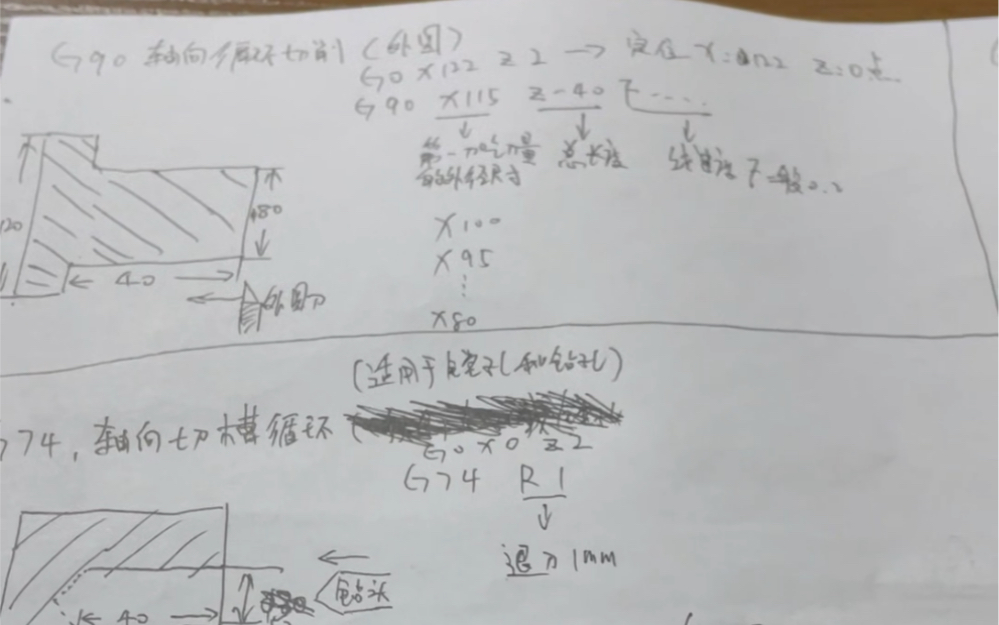 G90 轴向循环切削 (外圆)
G0 X122 Z2 → 定位 X:122 Z:0点
G90 X115 Z-40 F.....
第一刀吃刀量 总长度 线速度 F一般0.2
的外径尺寸
X100
X95
⋮
X80
120
φ80
40
外圆刀
(适用于镗孔和钻孔)
G74, 轴向切槽循环
G0 X0 Z2
G74 R1
退刀1mm
钻头
40